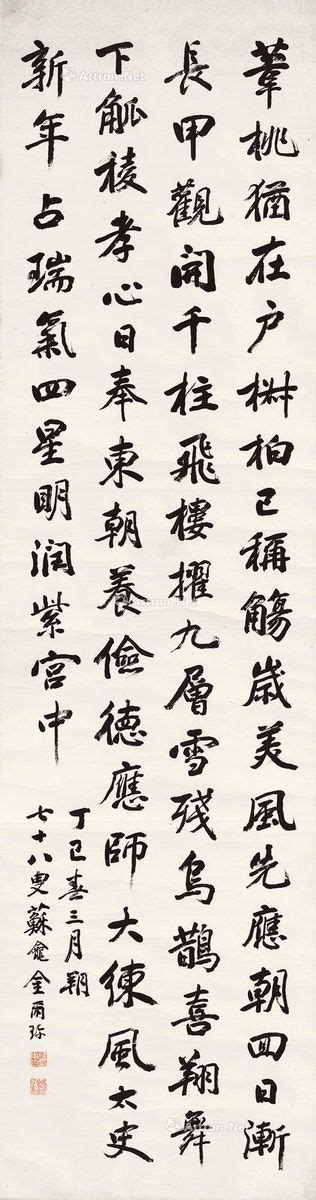 葦桃猶在户椒柏已稱觴歲美風先應朝回日漸
長甲觀開千柱飛樓擢九層雪殘烏鵲喜翔舞
下觚稜孝心日奉東朝養儉德應師大練風太史
新年占瑞氣四星明潤紫宮中
丁巳春三月朔
七十八叟蘇盦金爾珍
Artron.Net